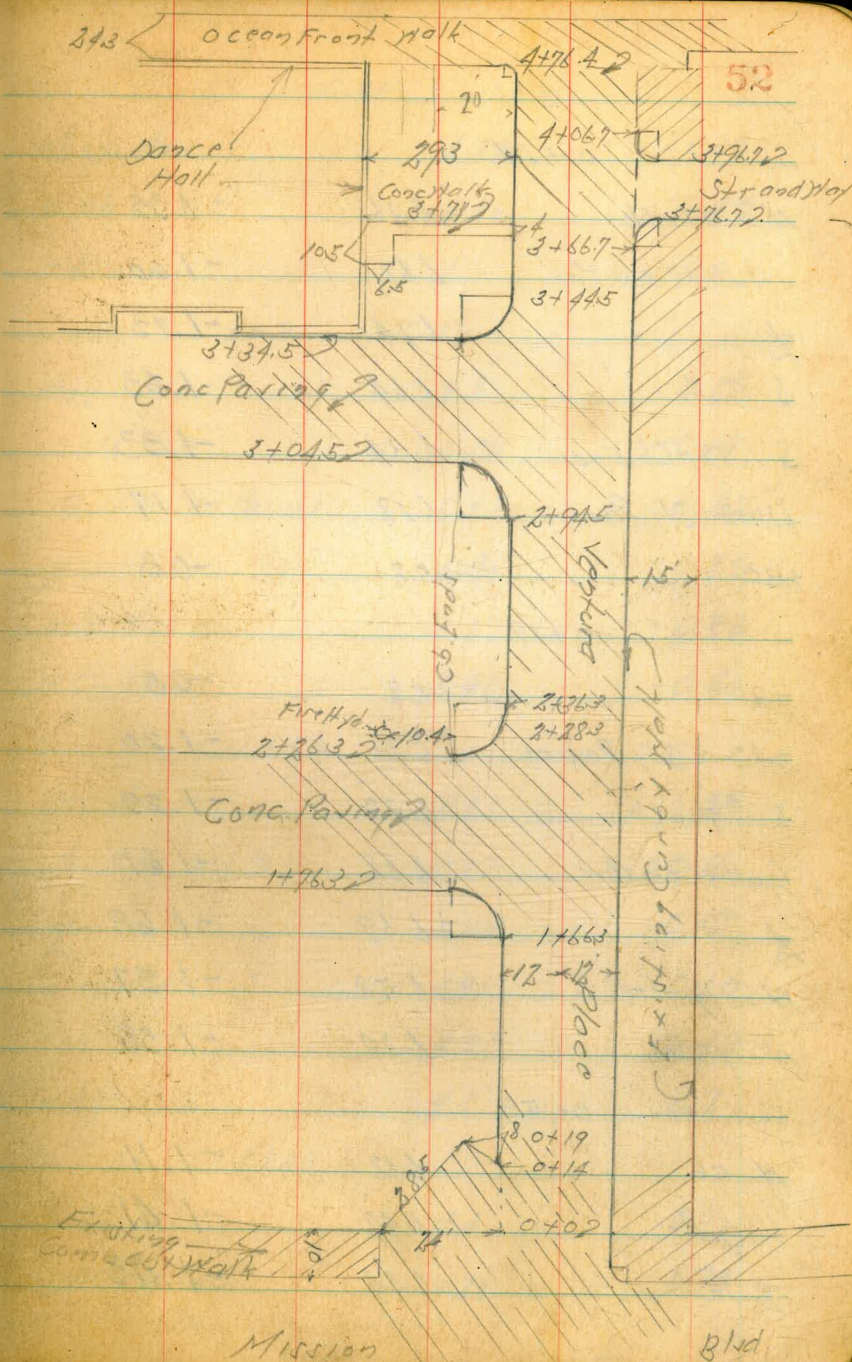 24.3
Ocean Front Walk
4+76.4
52
20
4+06.7
3+96.7
Dance
Hall
29.3
Conc Walk
3+71
4
Strand Way
3+76.7
10.5
6.5
3+66.7
3+44.5
3+34.5
Conc Paving
3+04.5
2+94.5
Ventura
15
2+36.3
Fire Hyd
10.4
2+28.3
2+26.3
Conc Paving
Existing Curb & Walk
1+76.3
1+66.3
12
12
Place
8
0+19
0+14
28.5
0+00
Existing
Conc Curb & Walk
10
24
Mission
Blvd